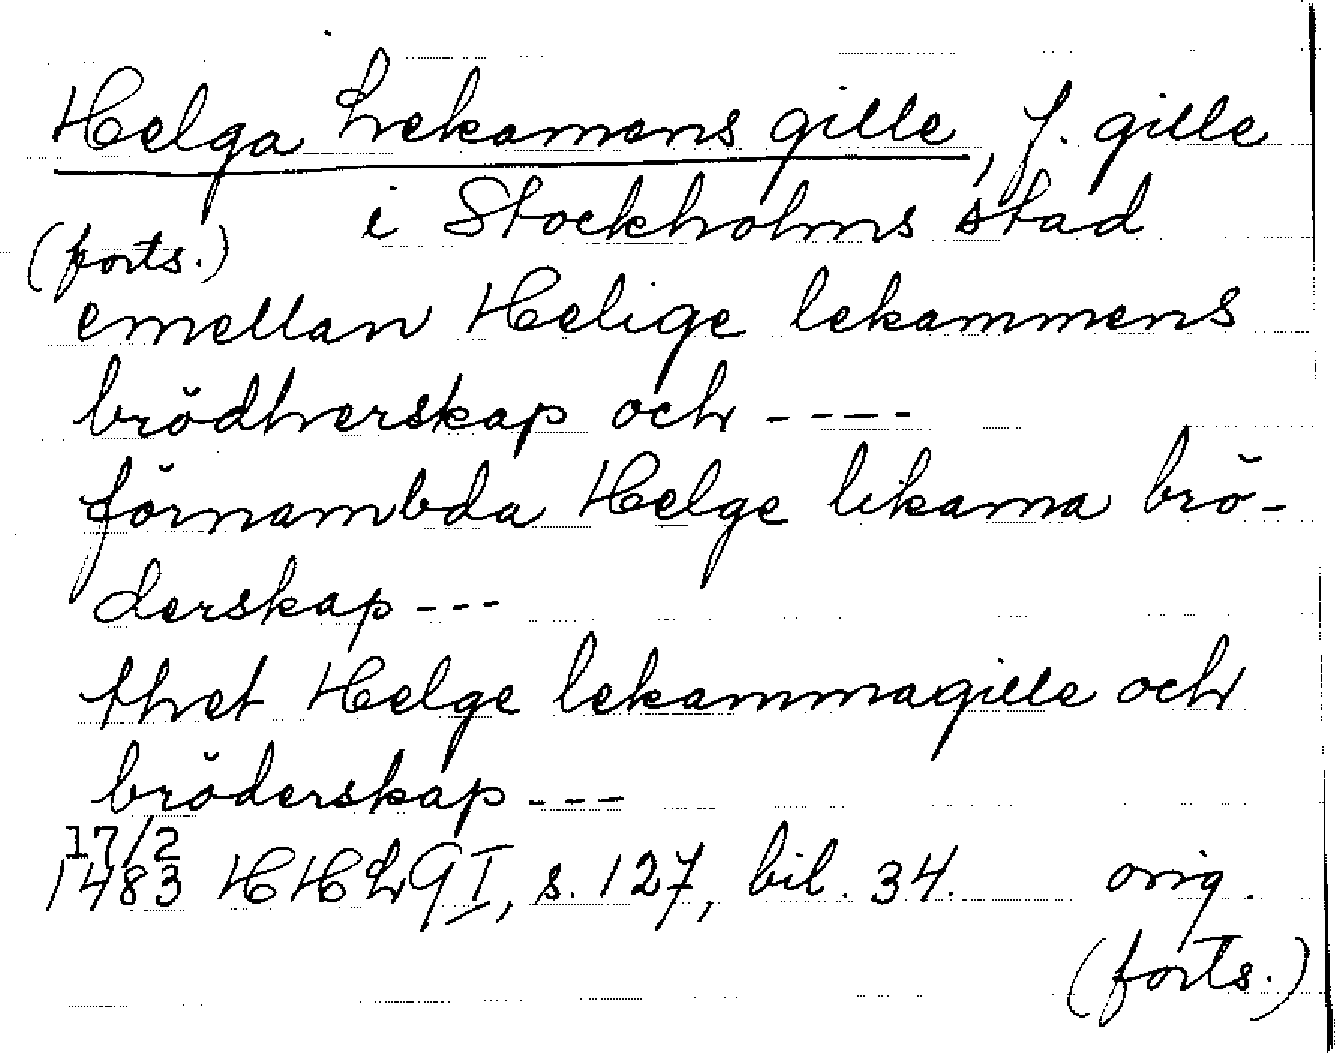 Helga Lekamens gille, f. gille
i Stockholms stad
(forts.)
emellan Helige lekammens
brödherskap och ----
förnambda Helge lekama brö-
derskap ---
thet Helge lekammagille och
bröderskap ---
17/2
1483 HHLG I, s. 127, bil. 34. orig.
(forts.)